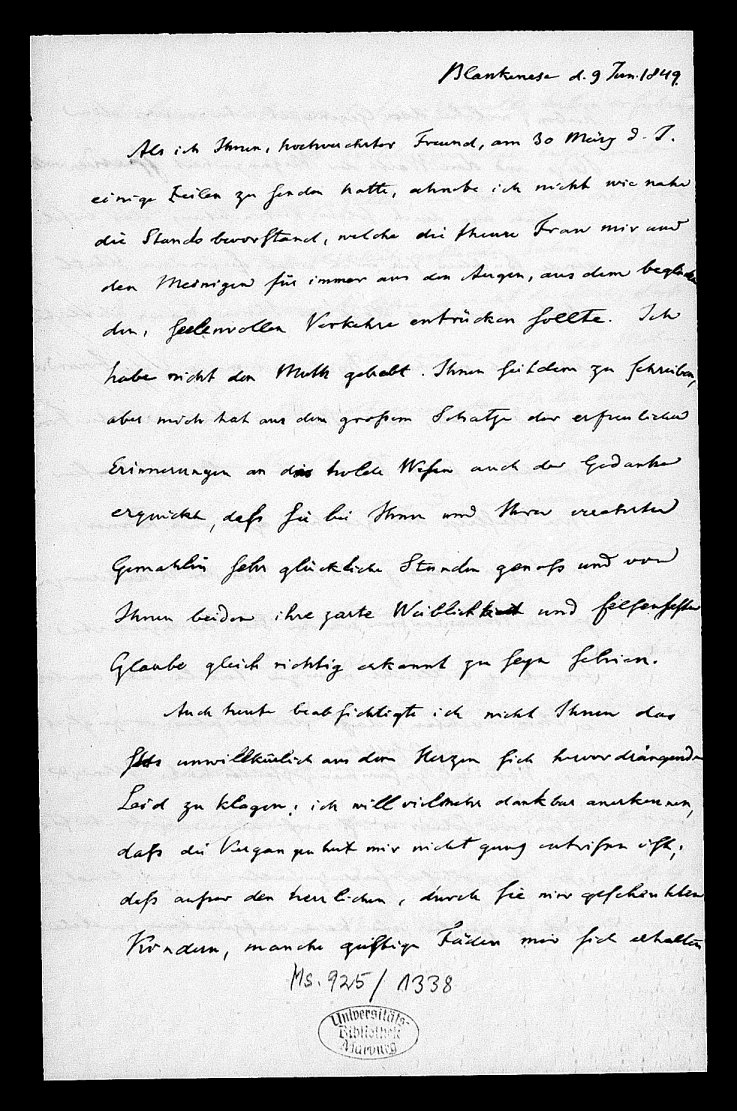 Blankenese d. 9 Jun. 1849.
Als ich Ihnen, hochverehrter Freund, am 30 März d. J.
einige Zeilen zu senden hatte, ahnete ich nicht wie nahe
die Stunde bevorstand, welche die theure Frau mir und
den Meinigen für immer aus den Augen, aus dem beglücken
den, seelenvollen Verkehre entrücken sollte. Ich
habe nicht den Muth gehabt Ihnen seitdem zu schreiben,
aber mich hat aus dem großen Schatze der erfreulichen
Erinnerungen an das holde Wesen auch der Gedanke
erquickt, daß sie bei Ihnen und Ihrer verehrten
Gemahlin sehr glückliche Stunden genoß und von
Ihnen beiden ihre zarte Weiblichkeit und felsenfester
Glaube gleich richtig erkannt zu seyn schien.
Auch heute beabsichtigte ich nicht Ihnen das
stets unwillkürlich aus dem Herzen sich hervordrängende
Leid zu klagen; ich will vielmehr dankbar anerkennen,
daß die Vergangenheit mir nicht ganz entrissen ist;
daß außer den herrlichen, durch sie mir geschenkten
Kindern, manche geistige Fäden mir sich erhalten
Ms. 925/1338
Universitäts-
Bibliothek
Marburg